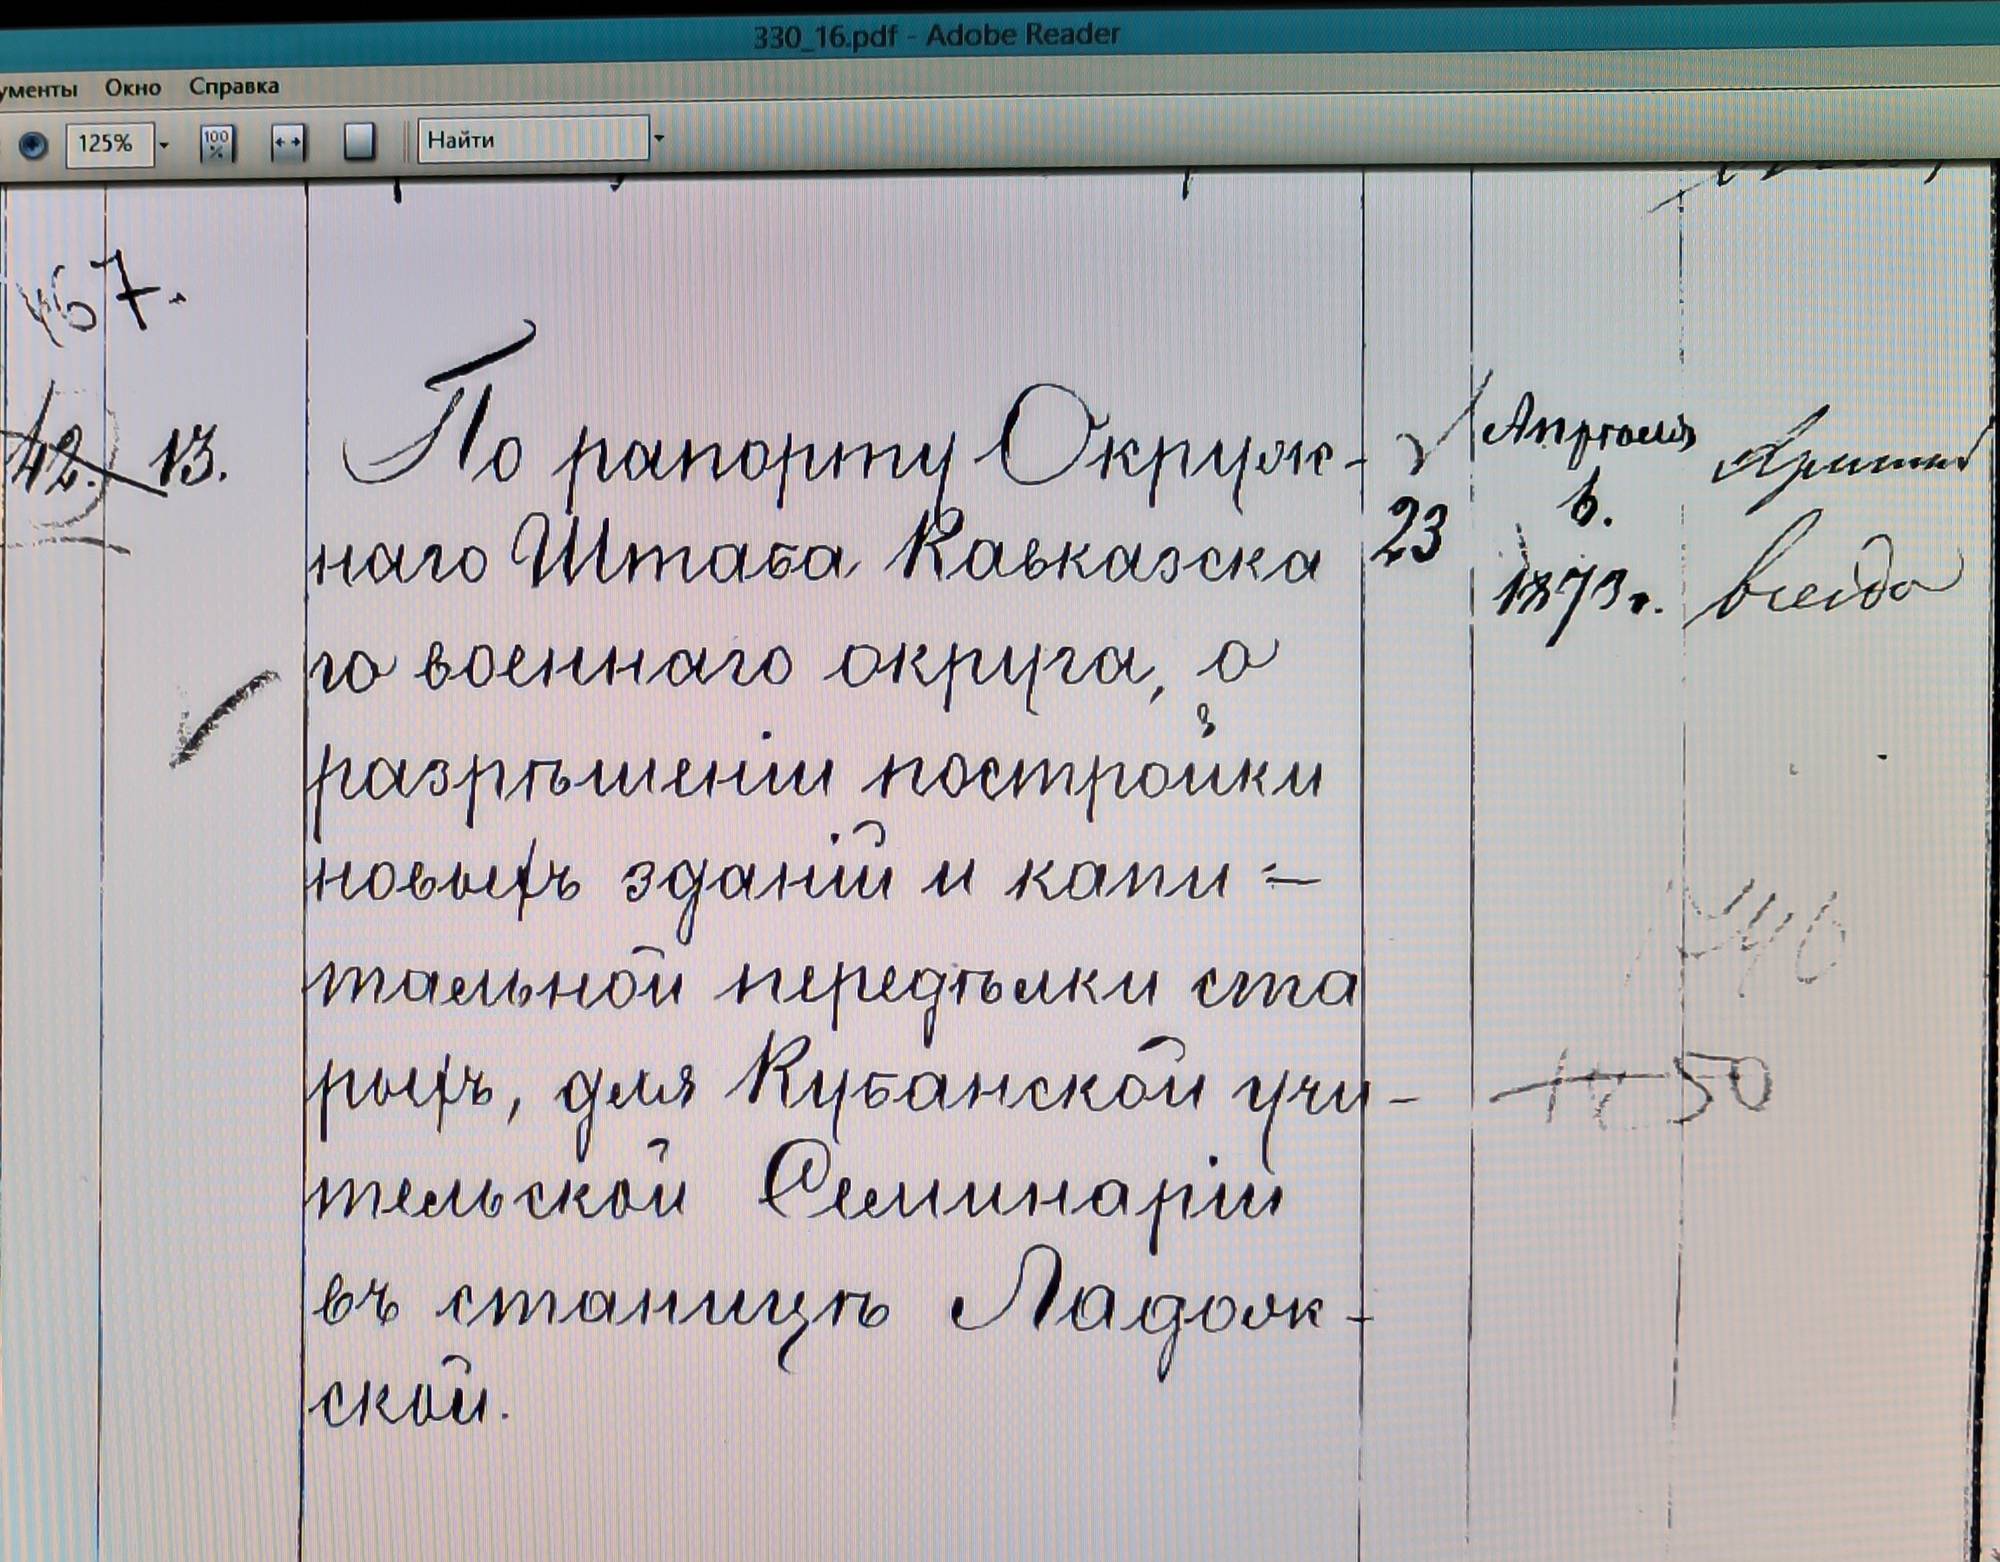 330_16.pdf - Adobe Reader
ументы Окно Справка
125% Найти
467.
42. 13.
По рапорту Окруж-
наго Штаба Кавказска
го военнаго округа, о
разрѣшеніи постройки
новыхъ зданій и капи=
тальной передѣлки ста
рыхъ, для Кубанской учи-
тельской Семинаріи
въ станицѣ Ладож-
ской.
23
Апрѣля
6.
1873г.
всегда
446
50